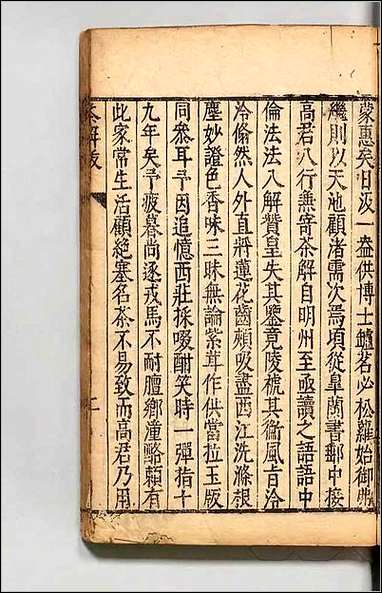 蒙惠矣日汲一盎供博士鑪茗必松蘿始御弗
繼則以天池顧渚需次焉頃從皐蘭書郵中接
高君八行無寄茶解自明州至亟讀之語語中
倫法法入解贊皇失其鑒竟陵褫其衡風旨泠
泠翛然人外直將蓮花齒頰吸盡西江洗滌根
塵妙證色香味三昧無論紫茸作供當拉玉版
同參耳予因追憶西莊採啜酣笑時一彈指十
九年矣予疲暮尚逐戎馬不耐膻鄉潼酪賴有
此家常生活顧絕塞名茶不易致而高君乃用
茶解跋
二